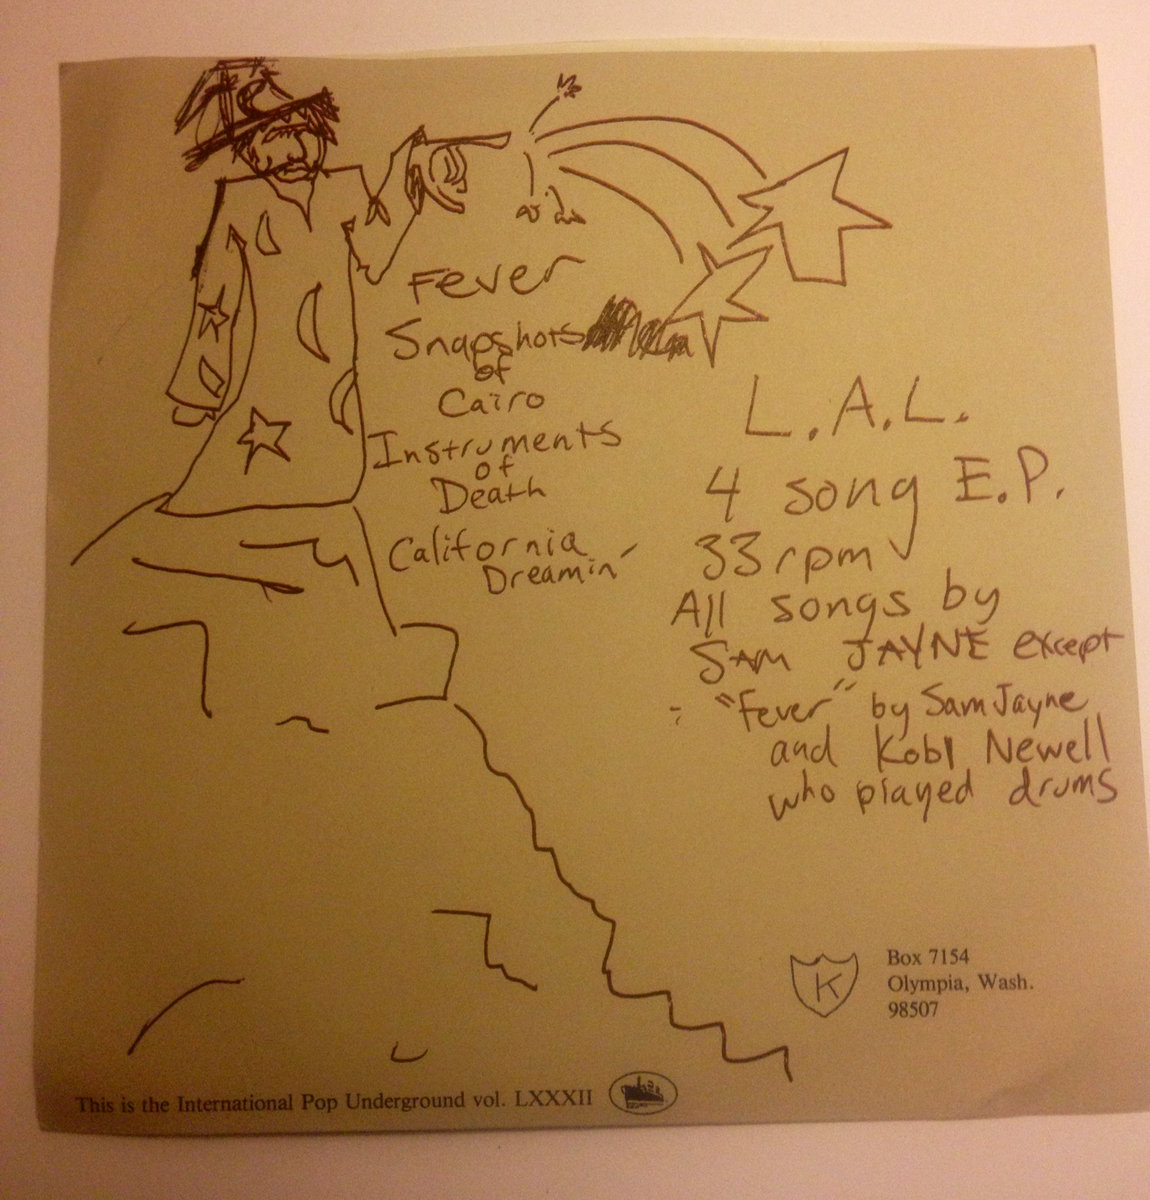 Fever
Snapshots
of
Cairo
Instruments
of
Death
California
Dreamin'
L.A.L.
4 song E.P.
33 rpm
All songs by
SAM JAYNE except
- "Fever" by Sam Jayne
and Kobl Newell
who played drums
K
Box 7154
Olympia, Wash.
98507
This is the International Pop Underground vol. LXXXII